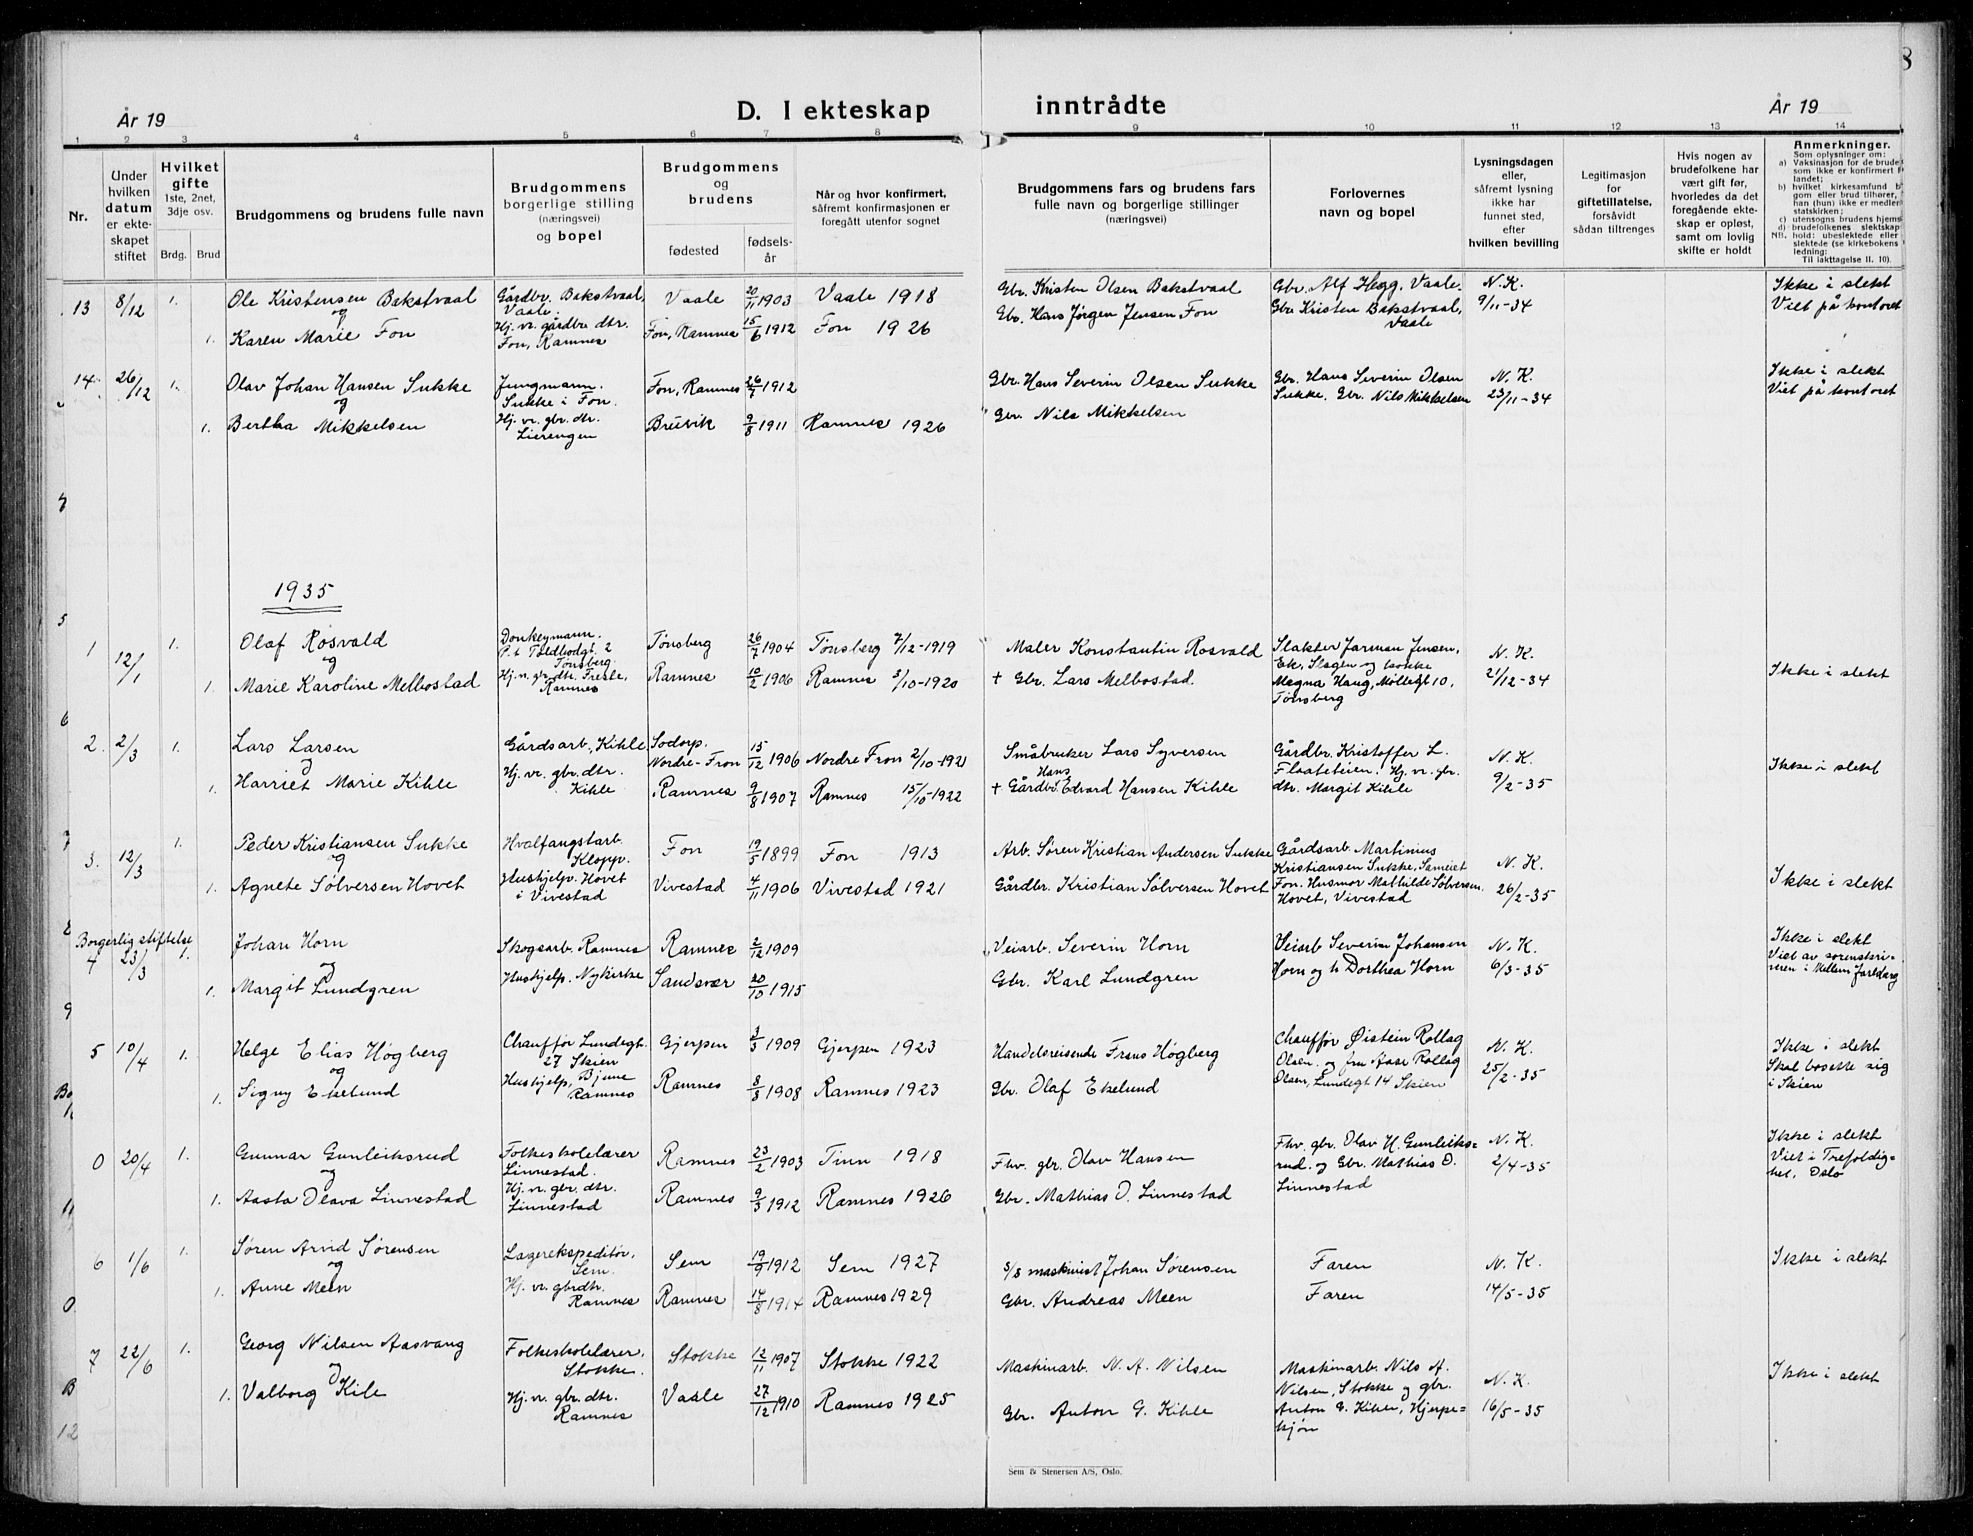 År 19
D. I ekteskap
inntrådte
År 19
8
1 2 3 4 5 6 7 8 9 10 11 12 13 14
Nr.
Under hvilken datum er ekteskapet stiftet
Hvilket gifte
1ste, 2net, 3dje osv.
Brdg. Brud
Brudgommens og brudens fulle navn
Brudgommens borgerlige stilling (næringsvei) og bopel
Brudgommens og brudens
fødested
fødselsår
Når og hvor konfirmert, såfremt konfirmasjonen er foregått utenfor sognet
Brudgommens fars og brudens fars fulle navn og borgerlige stillinger (næringsvei)
Forlovernes navn og bopel
Lysningsdagen eller, såfremt lysning ikke har funnet sted, efter hvilken bevilling
Legitimasjon for giftetillatelse, forsåvidt sådan tiltrenges
Hvis nogen av brudefolkene har vært gift før, hvorledes da det foregående ekteskap er opløst, samt om lovlig skifte er holdt
Anmerkninger.
Som oplysninger om:
a) Vaksinasjon for de brude
som ikke er konfirmert
landet;
b) hvilket kirkesamfund b
gom eller brud tilhører,
han (hun) ikke er medler
statskirken;
c) utensogns brudens hjems
d) brudefolkenes slektskap
NB. hold: ubeslektede eller
slektede (se kirkebokens
ledning:
Til iakttagelse II. 10).
13 8/12 1. Ole Kristensen Bakstvaal Gårdbr. Bakstvaal, Vaale. Vaale 20/11 1903 Vaale 1918 Gbr. Kristen Olsen Bakstvaal Gbr. Alf Hegg, Vaale. N. K. Ikke i slekt
og
1. Karen Marie Fon Hj. vr. gårdbr dtr. Fon, Ramnes Fon, Ramnes 15/6 1912 Fon 1926 Gbr. Hans Jørgen Jensen Fon Gbr Kristen Bakstvaal, Vaale 9/11-34 Viet på kontoret
14. 26/12 1. Olav Johan Hansen Sukke Jungmann. Sukke i Fon. Fon, Ramnes 26/7 1912 Gbr. Hans Severin Olsen Sukke Gbr. Hans Severin Olsen N. K. Ikke i slekt
og
1. Bertha Mikkelsen Hj. vr. gbr. dtr. Lierengen Bruvik 9/8 1911 Ramnes 1926 Gbr. Nils Mikkelsen Sukke. Gbr. Nils Mikkelsen 23/11-34 Viet på kontoret
1935
1 12/1 1. Olaf Rosvald Donkeymann. P.t Toldbodgt. 2 Tønsberg. Tønsberg 26/7 1904 Tønsberg 7/12-1919 Maler Konstantin Rosvald Slakter Jarman Jensen, Ek, Slagen og kokke N. K.
og
1. Marie Karoline Melbostad Hj. v. gbr dtr. Fresle, Ramnes Ramnes 10/2 1906 Ramnes 3/10-1920 + Gbr. Lars Melbostad. Magna Haug, Møllegt 10, Tønsberg 21/12-34 Ikke i slekt
2. 2/3 1. Lars Larsen Gårdsarb., Kihle. Sødorp. Nordre-Fron 15/12 1906 Nordre Fron 2/10-1921 Småbruker Lars Syversen Gårdbr. Kristoffer L. N. K.
og
1. Harriet Marie Kihle Hj. vr. gbr. dtr. Kihle Ramnes 9/8 1907 Ramnes 15/10-1922 + Gårdbr. Hans Edvard Hansen Kihle Flaateteien. Hj. vr. gbr. dtr. Margit Kihle 9/2-35 Ikke i slekt
3. 12/3 1. Peder Kristiansen Sukke Hvalfangstarb. Klopp. Fon 19/5 1899 Fon 1913 Arb. Søren Kristian Andersen Sukke Gårdsarb. Martinius Kristiansen Sukke, Sameiet N. K.
og
1. Agnete Sølversen Hovet Hushjelp. Hovet i Vivestad Vivestad 4/11 1906 Vivestad 1921 Gårdbr. Kristian Sølversen Hovet Fon. Husmor Mathilde Sølversen. Hovet, Vivestad 26/2-35 Ikke i slekt
Borgerlig stiftelse
4 23/3 1. Johan Horn Skogsarb. Ramnes Ramnes 2/12 1909 Veiarb. Severin Horn Veiarb Severin Johansen N. K. Ikke i slekt
og
1. Margit Lundgren Hushjelp. Nykirke Sandsvær 20/10 1915 Gbr. Karl Lundgren Horn og h Dorthea Horn 6/3-35 Viet av sorenskriveren i Mellem Jarlsberg
5 10/4 1. Helge Elias Høgberg Chauffør Lundegt. 27 Skien Gjerpen 3/3 1909 Gjerpen 1923 Handelsreisende Frans Høgberg Chauffør Øistein Rollag N. K. Ikke i slekt
og
1. Signy Ekelund Hushjelp, Bjune Ramnes Ramnes 8/8 1908 Ramnes 1923 Gbr. Olaf Ekelund Olsen. og fru Aase Rollag Olsen, Lundegt 14 Skien 25/2-35 Skal bosette sig i Skien
0 20/4 1. Gunnar Gunleiksrud Folkeskolelærer Linnestad. Ramnes 23/2 1903 Tinn 1918 Fhv. gbr. Olav Hansen Fhv. gbr. Olav H. Gunleiks= N. K. Ikke i slekt
og
1. Aasta Olava Linnestad Hj. v. gbr. dtr. Linnestad Ramnes 9/3 1912 Ramnes 1926 Gbr. Mathias O. Linnestad rud. og Gbr. Mathias O. Linnestad 2/4-35 Viet i Trefoldighet, Oslo
6 1/6 1. Søren Arvid Sørensen Lagerekspeditør, Sem. Sem 19/9 1912 Sem 1927 s/s maskinist Johan Sørensen Faren N. K. Ikke i slekt
og
1. Anne Meen Hj. vr. gbrdtr. Ramnes Ramnes 14/8 1914 Ramnes 1929 Gbr. Andreas Meen Faren 14/5-35
7 22/6 1. Georg Nilsen Aasvang Folkeskolelærer, Stokke. Stokke 12/11 1907 Stokke 1922 Maskinarb. N. A. Nilsen Maskinarb. Nils A. Nilsen, Stokke og gbr. N. K. Ikke i slekt
og
1. Valborg Kile Hj. v. gbr. dtr. Ramnes Vaale 27/12 1910 Ramnes 1925 Gbr. Anton G. Kihle Anton G. Kihle, Hjerpekjøn 16/5-35
Sem & Stenersen A/S, Oslo.